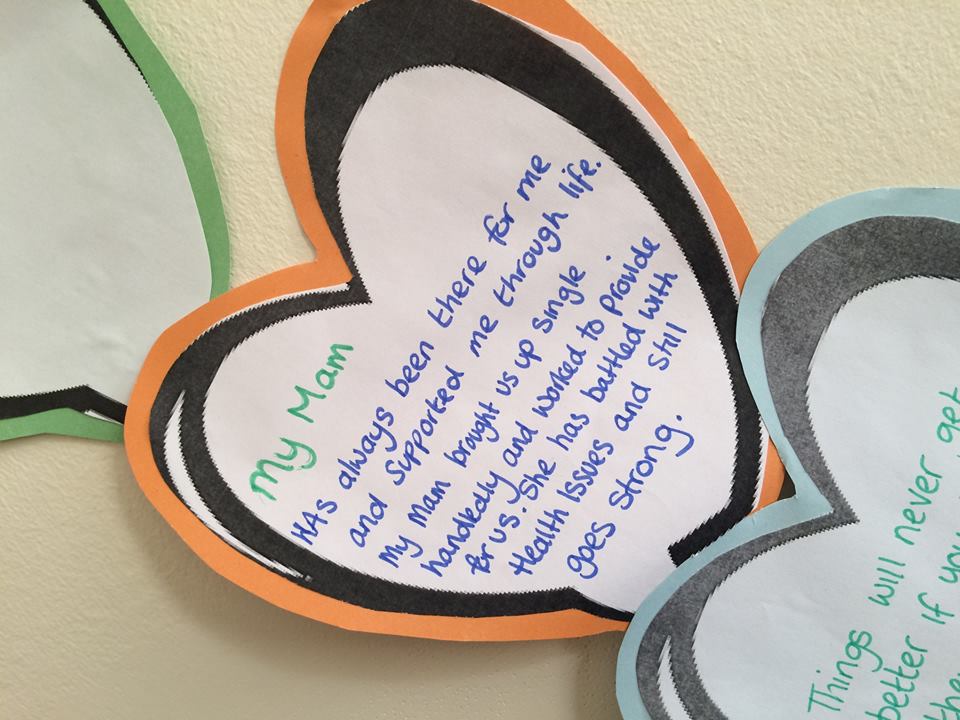 My Mam
HAs always been there for me
and supported me through life.
My Mam brought us up single
handledly and worked to provide
for us. She has battled with
Health Issues and still
goes strong.
Things will never get
better if you